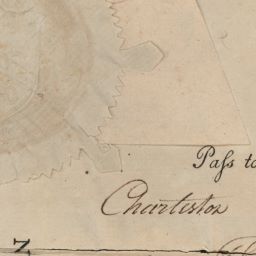 Paſs to
Charleston
N